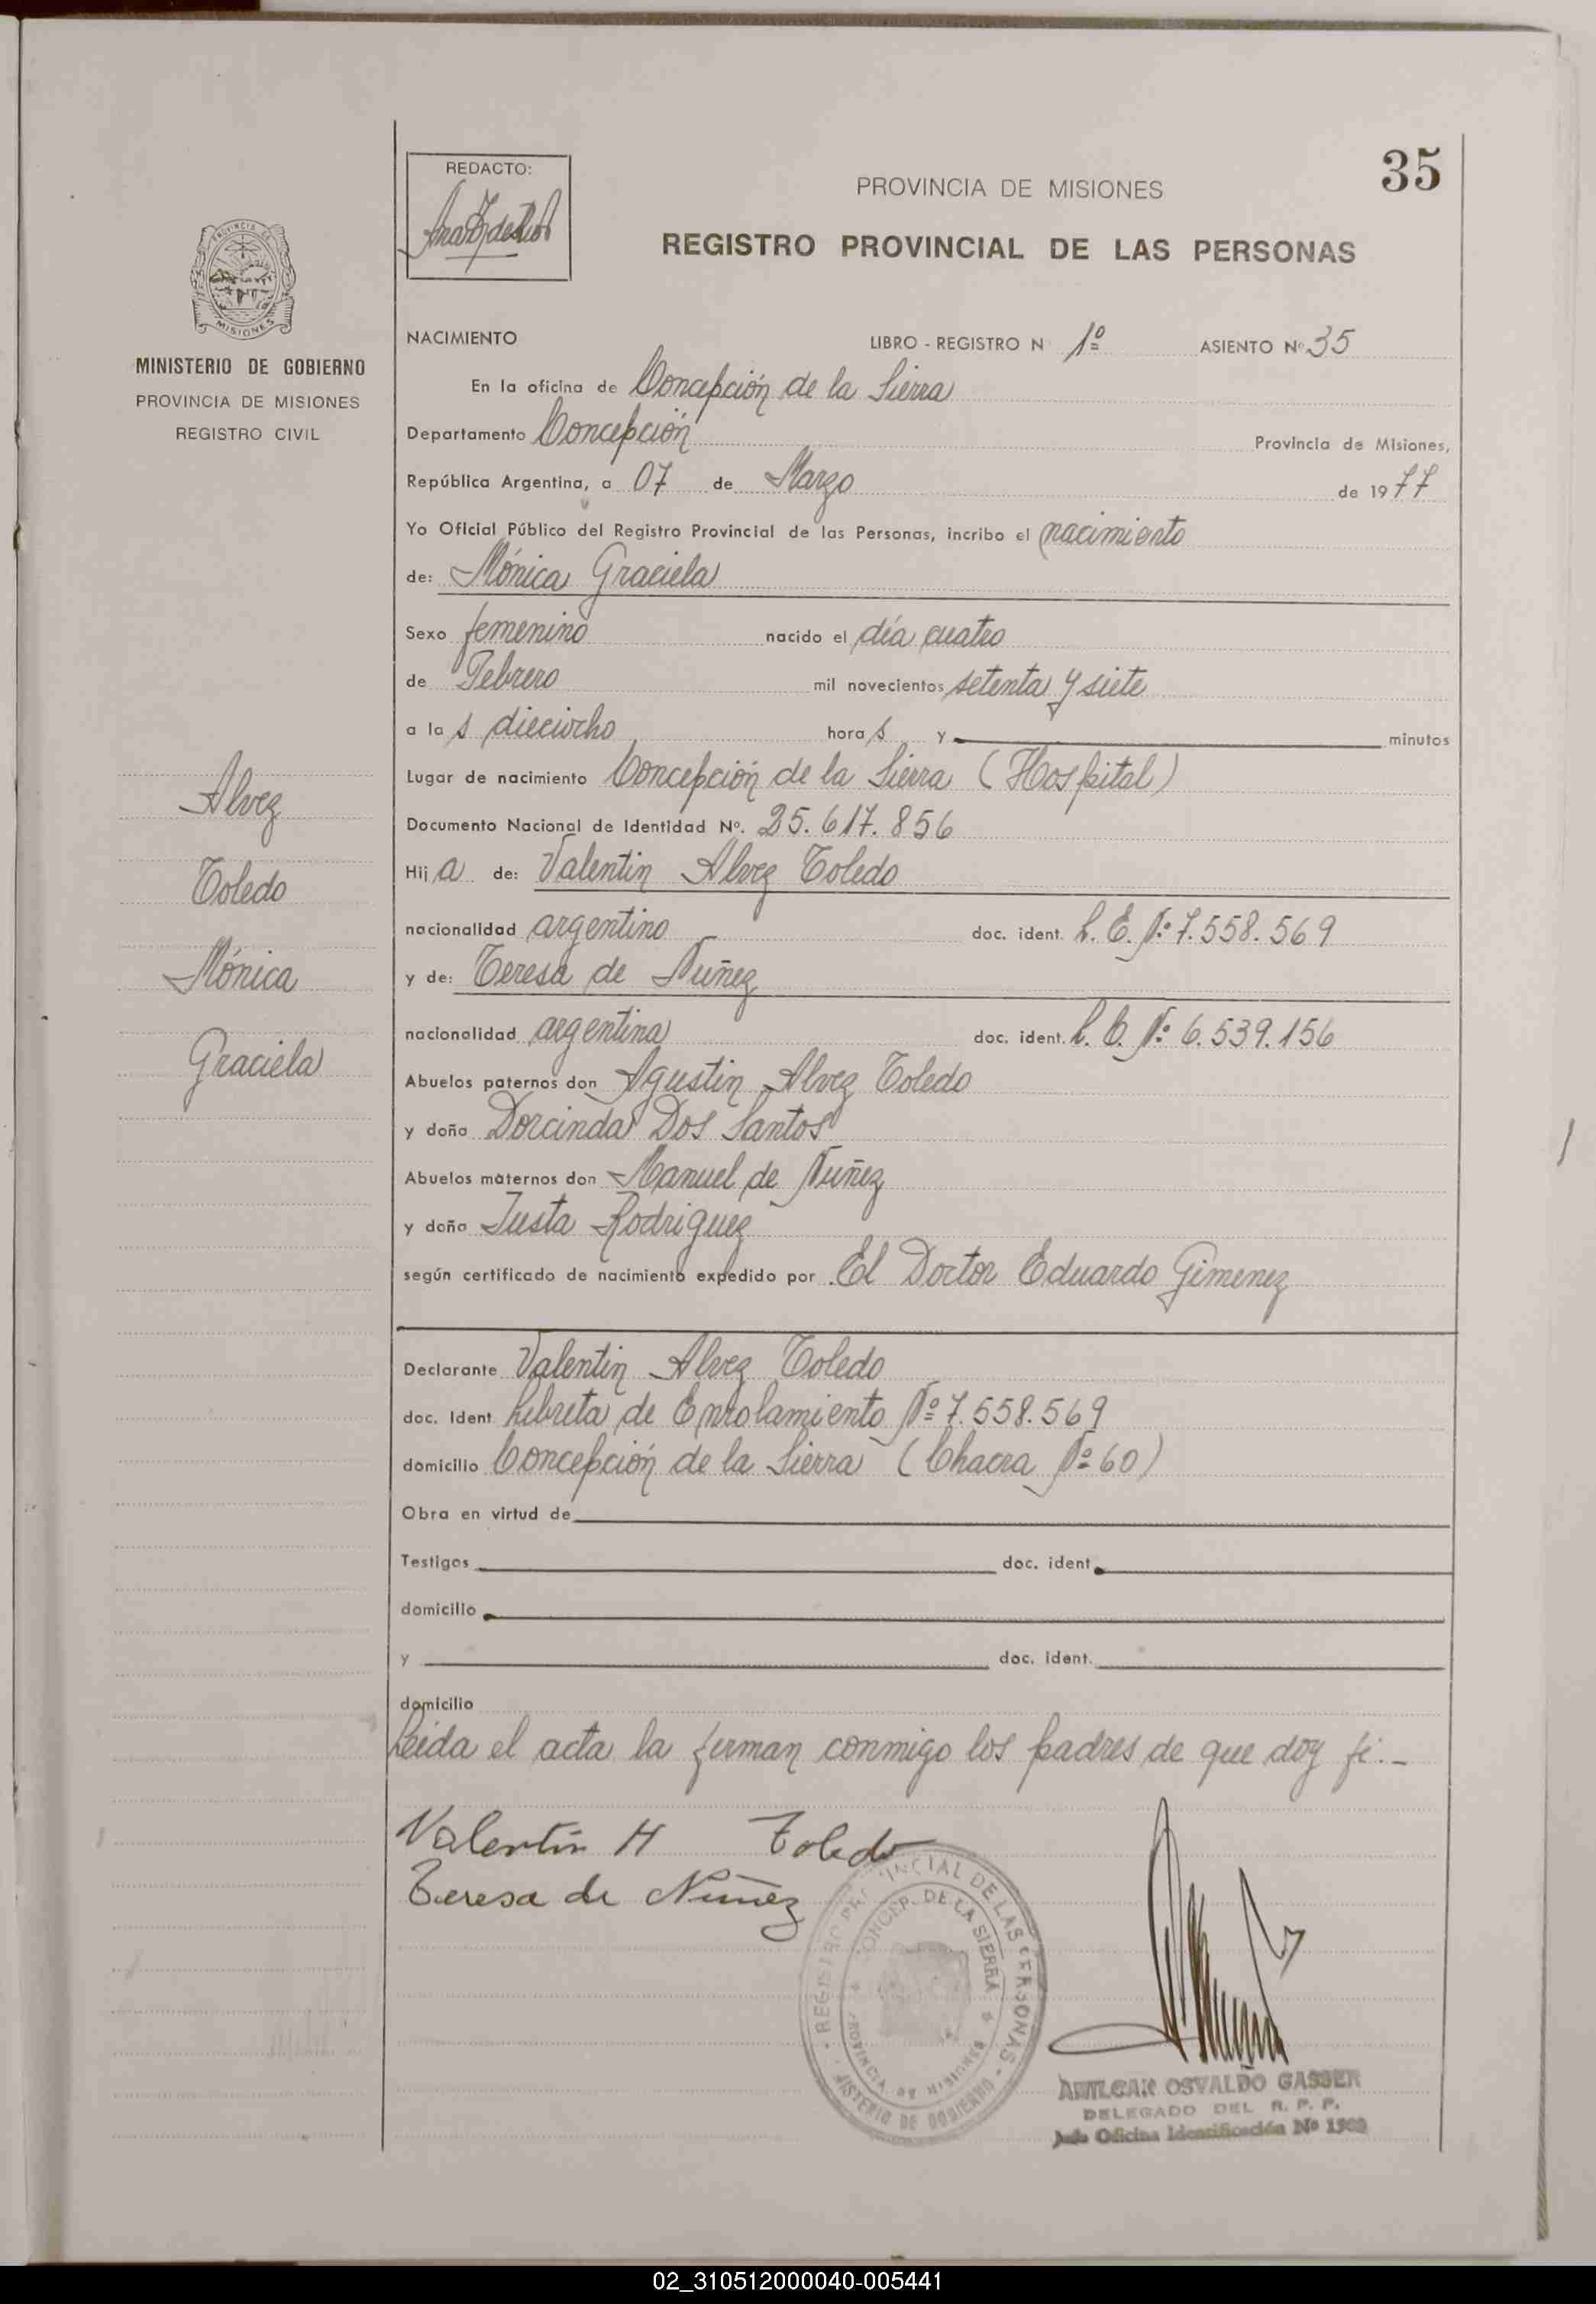 35
REDACTO:
PROVINCIA DE MISIONES
REGISTRO PROVINCIAL DE LAS PERSONAS
MISIONES
MINISTERIO DE GOBIERNO
PROVINCIA DE MISIONES
REGISTRO CIVIL
Alvez
Toledo
Mónica
Graciela
NACIMIENTO LIBRO - REGISTRO N 1º ASIENTO Nº 35
En la oficina de Concepción de la Sierra
Departamento Concepción Provincia de Misiones,
República Argentina, a 07 de Marzo de 1977
Yo Oficial Público del Registro Provincial de las Personas, incribo el nacimiento
de: Mónica Graciela
Sexo femenino nacido el día cuatro
de Febrero mil novecientos setenta y siete
a las dieciocho horas y minutos
Lugar de nacimiento Concepción de la Sierra (Hospital)
Documento Nacional de Identidad Nº. 25.617.856
Hija de: Valentin Alvez Toledo
nacionalidad argentino doc. ident. L. E. Nº 7.558.569
y de: Teresa de Nuñez
nacionalidad argentina doc. ident. L. C. Nº 6.539.156
Abuelos paternos don Agustin Alvez Toledo
y doña Dorcinda Dos Santos
Abuelos maternos don Manuel de Nuñez
y doña Justa Rodriguez
según certificado de nacimiento expedido por El Doctor Eduardo Gimenez
Declarante Valentin Alvez Toledo
doc. Ident Libreta de Enrolamiento Nº 7.558.569
domicilio Concepción de la Sierra (Chacra Nº 60)
Obra en virtud de
Testigos doc. ident.
domicilio
y doc. ident.
domicilio
Leida el acta la firman conmigo los padres de que doy fé.-
Valentin H Toledo
Teresa de Nuñez
REGISTRO PROVINCIAL DE LAS PERSONAS
CONCEP. DE LA SIERRA
PROVINCIA DE MISIONES
MINISTERIO DE GOBIERNO
AMILCAR OSVALDO GASSER
DELEGADO DEL R. P. P.
Jefe Oficina Identificación Nº
02_310512000040-005441